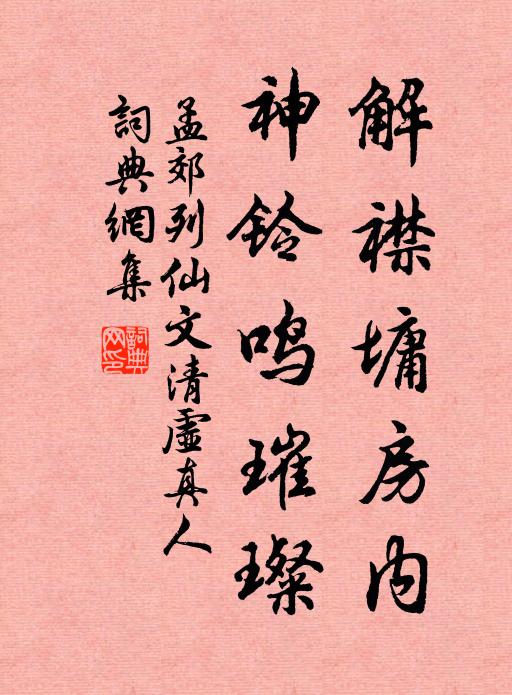 解襟墉房内
神铃鸣璀璨
孟郊列仙文清虚真人
詞典網集
詞典网印